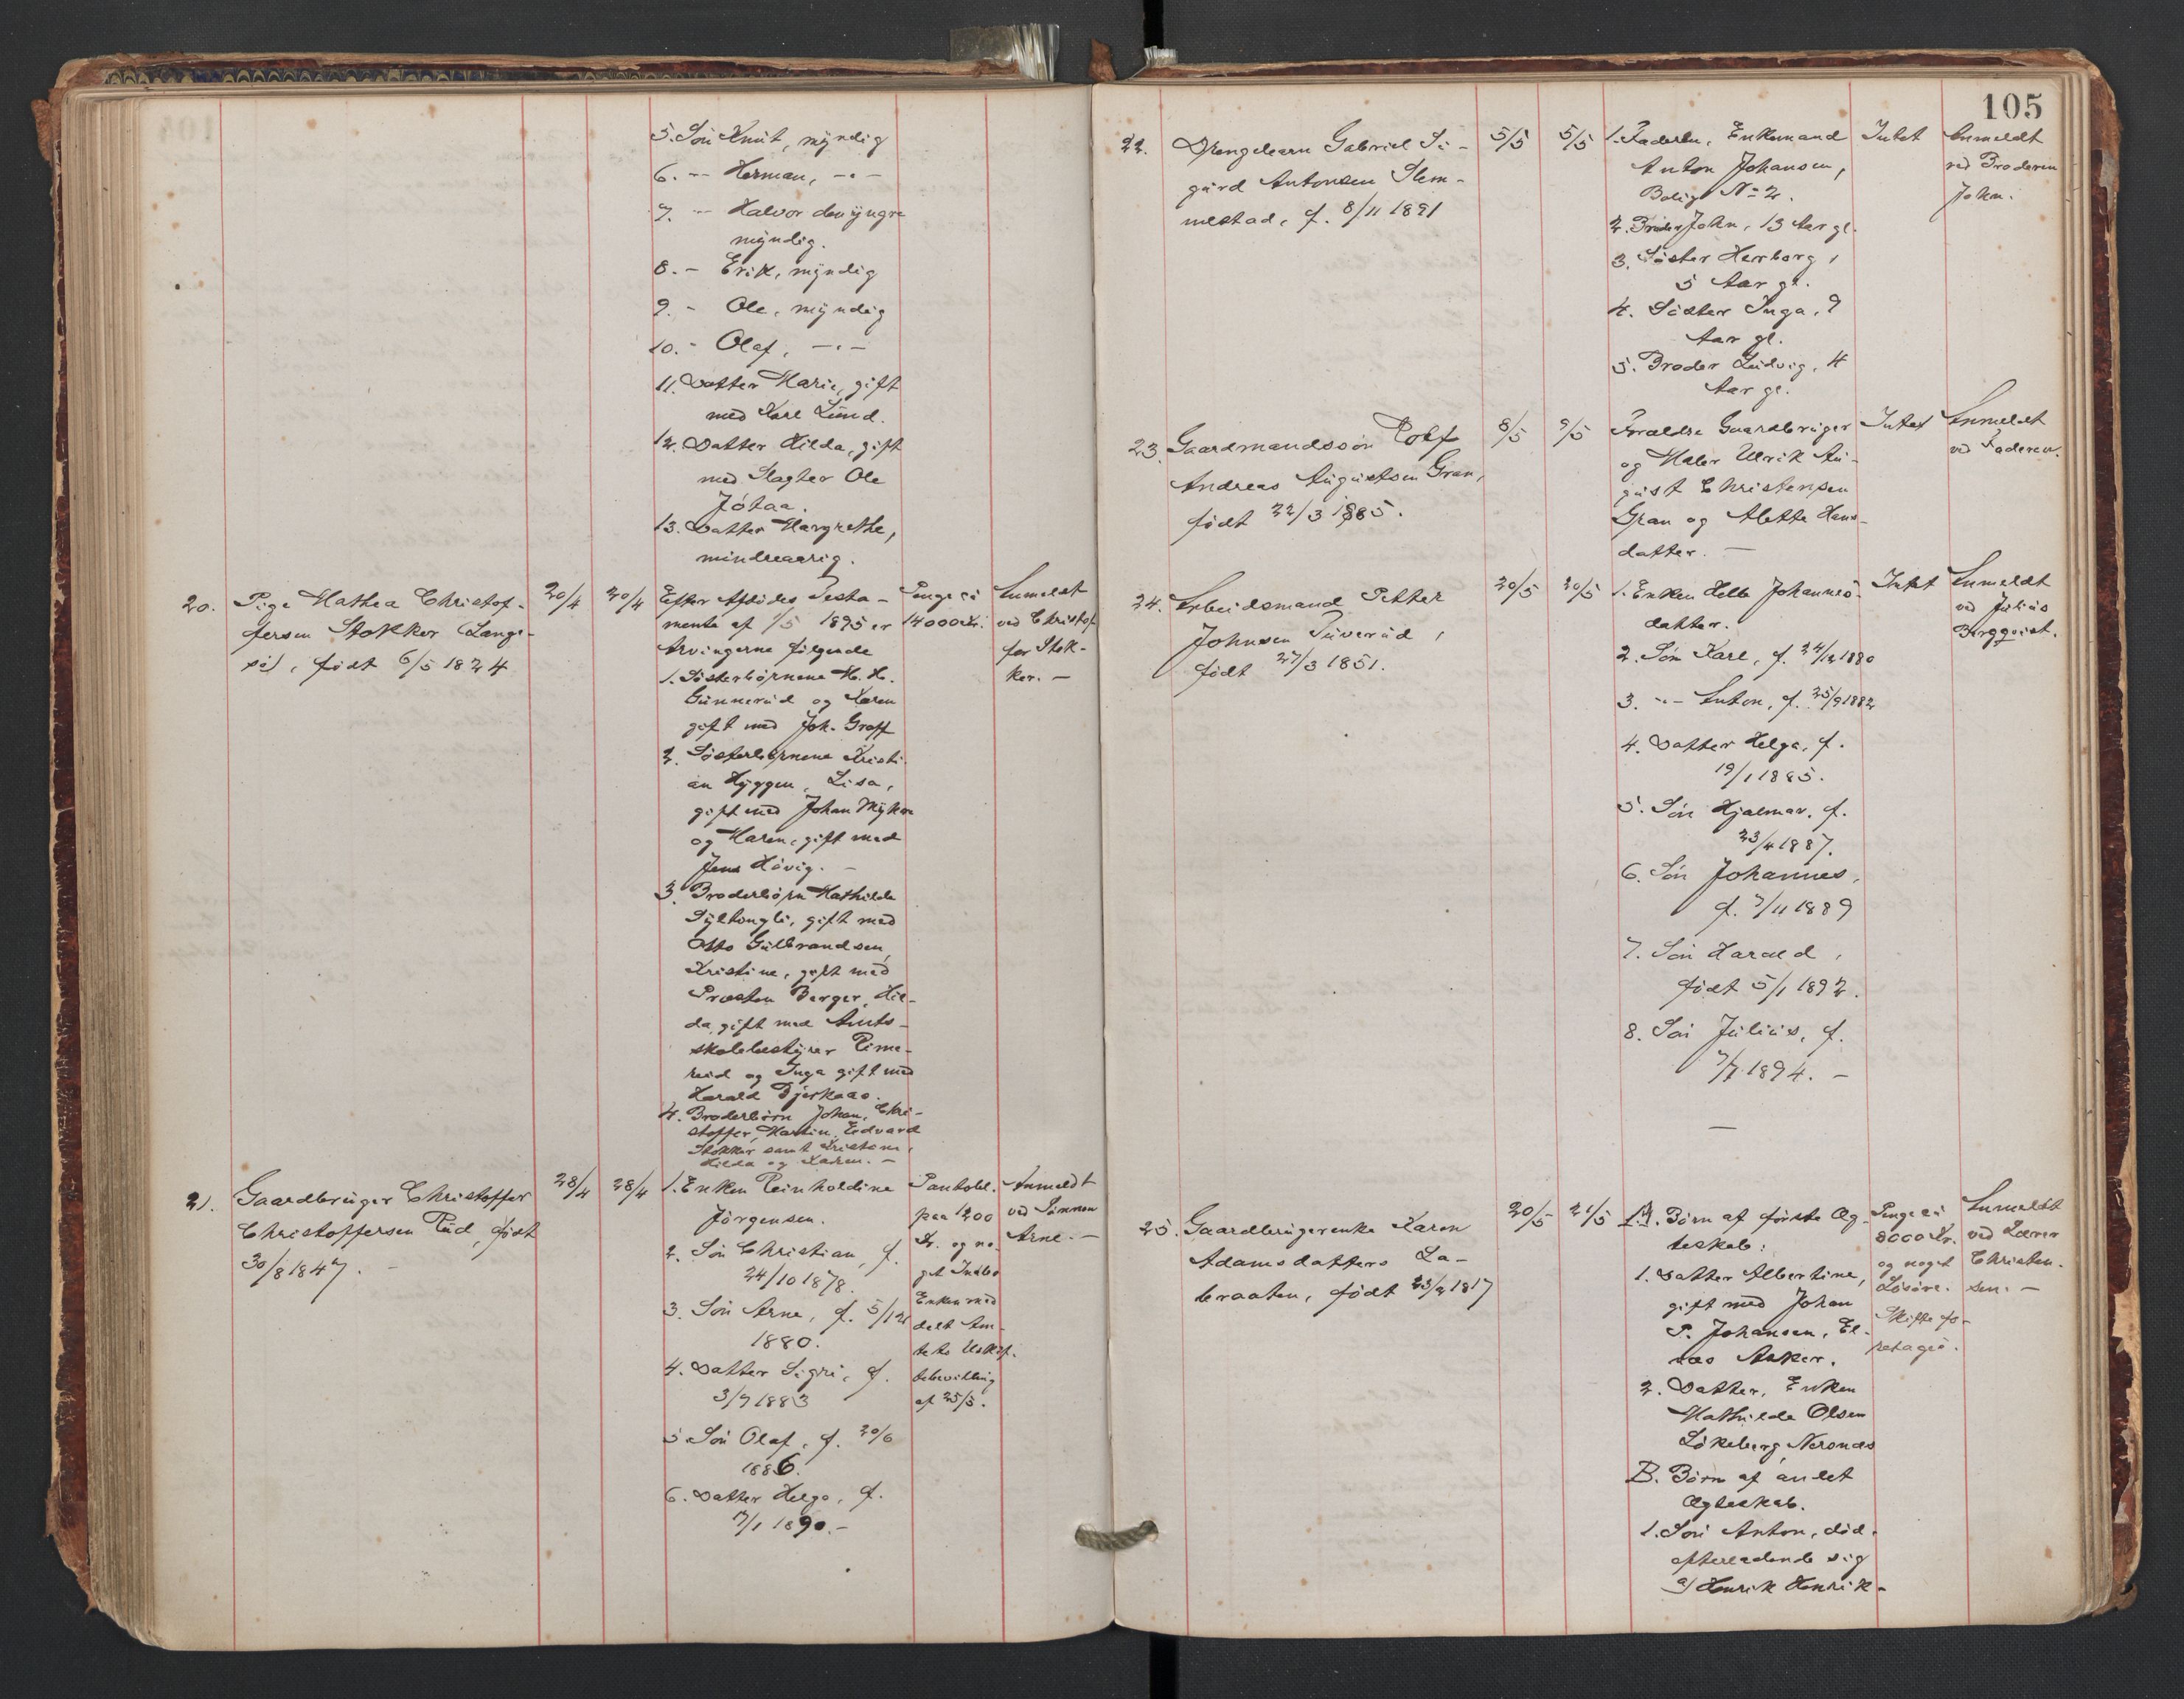 5. Søn Knut, myndig
6. -"- Herman, -"-
7. -"- Halvor den yngre
myndig.
8. - Erik, myndig
9. - Ole, myndig
10. - Olaf, -"-
11. Datter Marie, gift
med Karl Lund.
12. Datter Hilda, gift
med Slagter Ole
13. Datter Margrethe,
mindreaarig.
20.
Pige Mathea Christof-
fersen Stokker (Lange-
, født 6/5 1824
20/4
20/4
Efter Afdødes Testa-
mente af 1/5 1895 er
Arvingerne følgende
1. Søsterbørnene H. H.
Gunnerud og Karen
gift med Joh. Groff
2. Søsterbørnene Kristi-
an Hyggen, Lisa,
gift med Johan
og Maren, gift med
Jens Høvig. -
3. Broderbørn Mathilde
gift med
Otto Gulbrandsen,
Kristine, gift med
Præsten Berger, Hil-
da, gift med Amts-
skolebestyrer Rime-
reid og Inga gift med
Harald Bjerkaas.
4. Broderbørn Johan, Chri-
stoffer, Martin, Edvard
Stokker samt
Hilda og Karen. -
Penge ca
14000 Kr.
Anmeldt
ved Christof
fer Stok-
ker. -
21.
Gaardbruger Christoffer
Christoffersen Rud, født
30/8 1847. -
28/4
28/4
1. Enken Reinholdine
Jørgensen.
2. Søn Christian, f.
24/10 1878.
3. Søn Arne, f. 5/12
1880.
4. Datter Sigri, f.
3/7 1883
5. Søn Olaf, f. 20/6
1886.
6. Datter Helga, f.
7/1 1890. -
Pantobl.
paa 1200
Kr. og no-
get Indbo
Enken med
delt Am-
tets Uskif-
tebevilling
af 25/5.
Anmeldt
ved Sønnen
Arne. -
105
22.
Drengebarn Gabriel Si-
gurd Antonsen Slem-
mestad, f. 8/11 1891
5/5
5/5
1. Faderen, Enkemand
Anton Johansen,
Bolig No 2.
2. Broder John, 13 Aar gl.
3. Søster Herborg,
5 Aar gl.
4. Søster Inga, 9
Aar gl.
5. Broder Ludvig, 4
Aar gl.
Intet
Anmeldt
ved Broderen
John.
23.
Gaardmandssøn Rolf
Andreas Augustsen Gran,
født 22/3 1885.
8/5
9/5
Forældre Gaardbruger
og Maler Ulrik Au-
gust Christensen
Gran og Alette Hans-
datter. -
Intet
Anmeldt
ved Faderen.
24.
Arbeidsmand Petter
Johnsen Tuverud,
født 27/3 1851.
20/5
20/5
1. Enken Helle Johannes-
datter.
2. Søn Karl, f. 24/12 1880
3. -"- Anton, f. 25/9 1882
4. Datter Helga, f.
19/1 1885.
5. Søn Hjalmar, f.
23/4 1887.
6. Søn Johannes,
f. 7/11 1889
7. Søn Harald,
født 5/1 1892.
8. Søn Julius, f.
7/7 1894. -
Intet
Anmeldt
ved Julius
Bergqvist.
25.
Gaardbrugerenke Karen
Adamsdatter La-
braaten, født 23/2 1817
20/5
21/5
A. Børn af første Æg-
teskab:
1. Datter Albertine,
gift med Johan
P. Johansen, El-
næs Asker.
2. Datter, Enken
Mathilde Olsen
Løkeberg, Nersnæs
B. Børn af andet
Ægteskab.
1. Søn Anton, død.
efterladende sig
a) Henrik Henrik-
Penge ca
8000 Kr.
og noget
Løsøre.
Skifte fo-
retages.
Anmeldt
ved Lærer
Christen-
sen. -